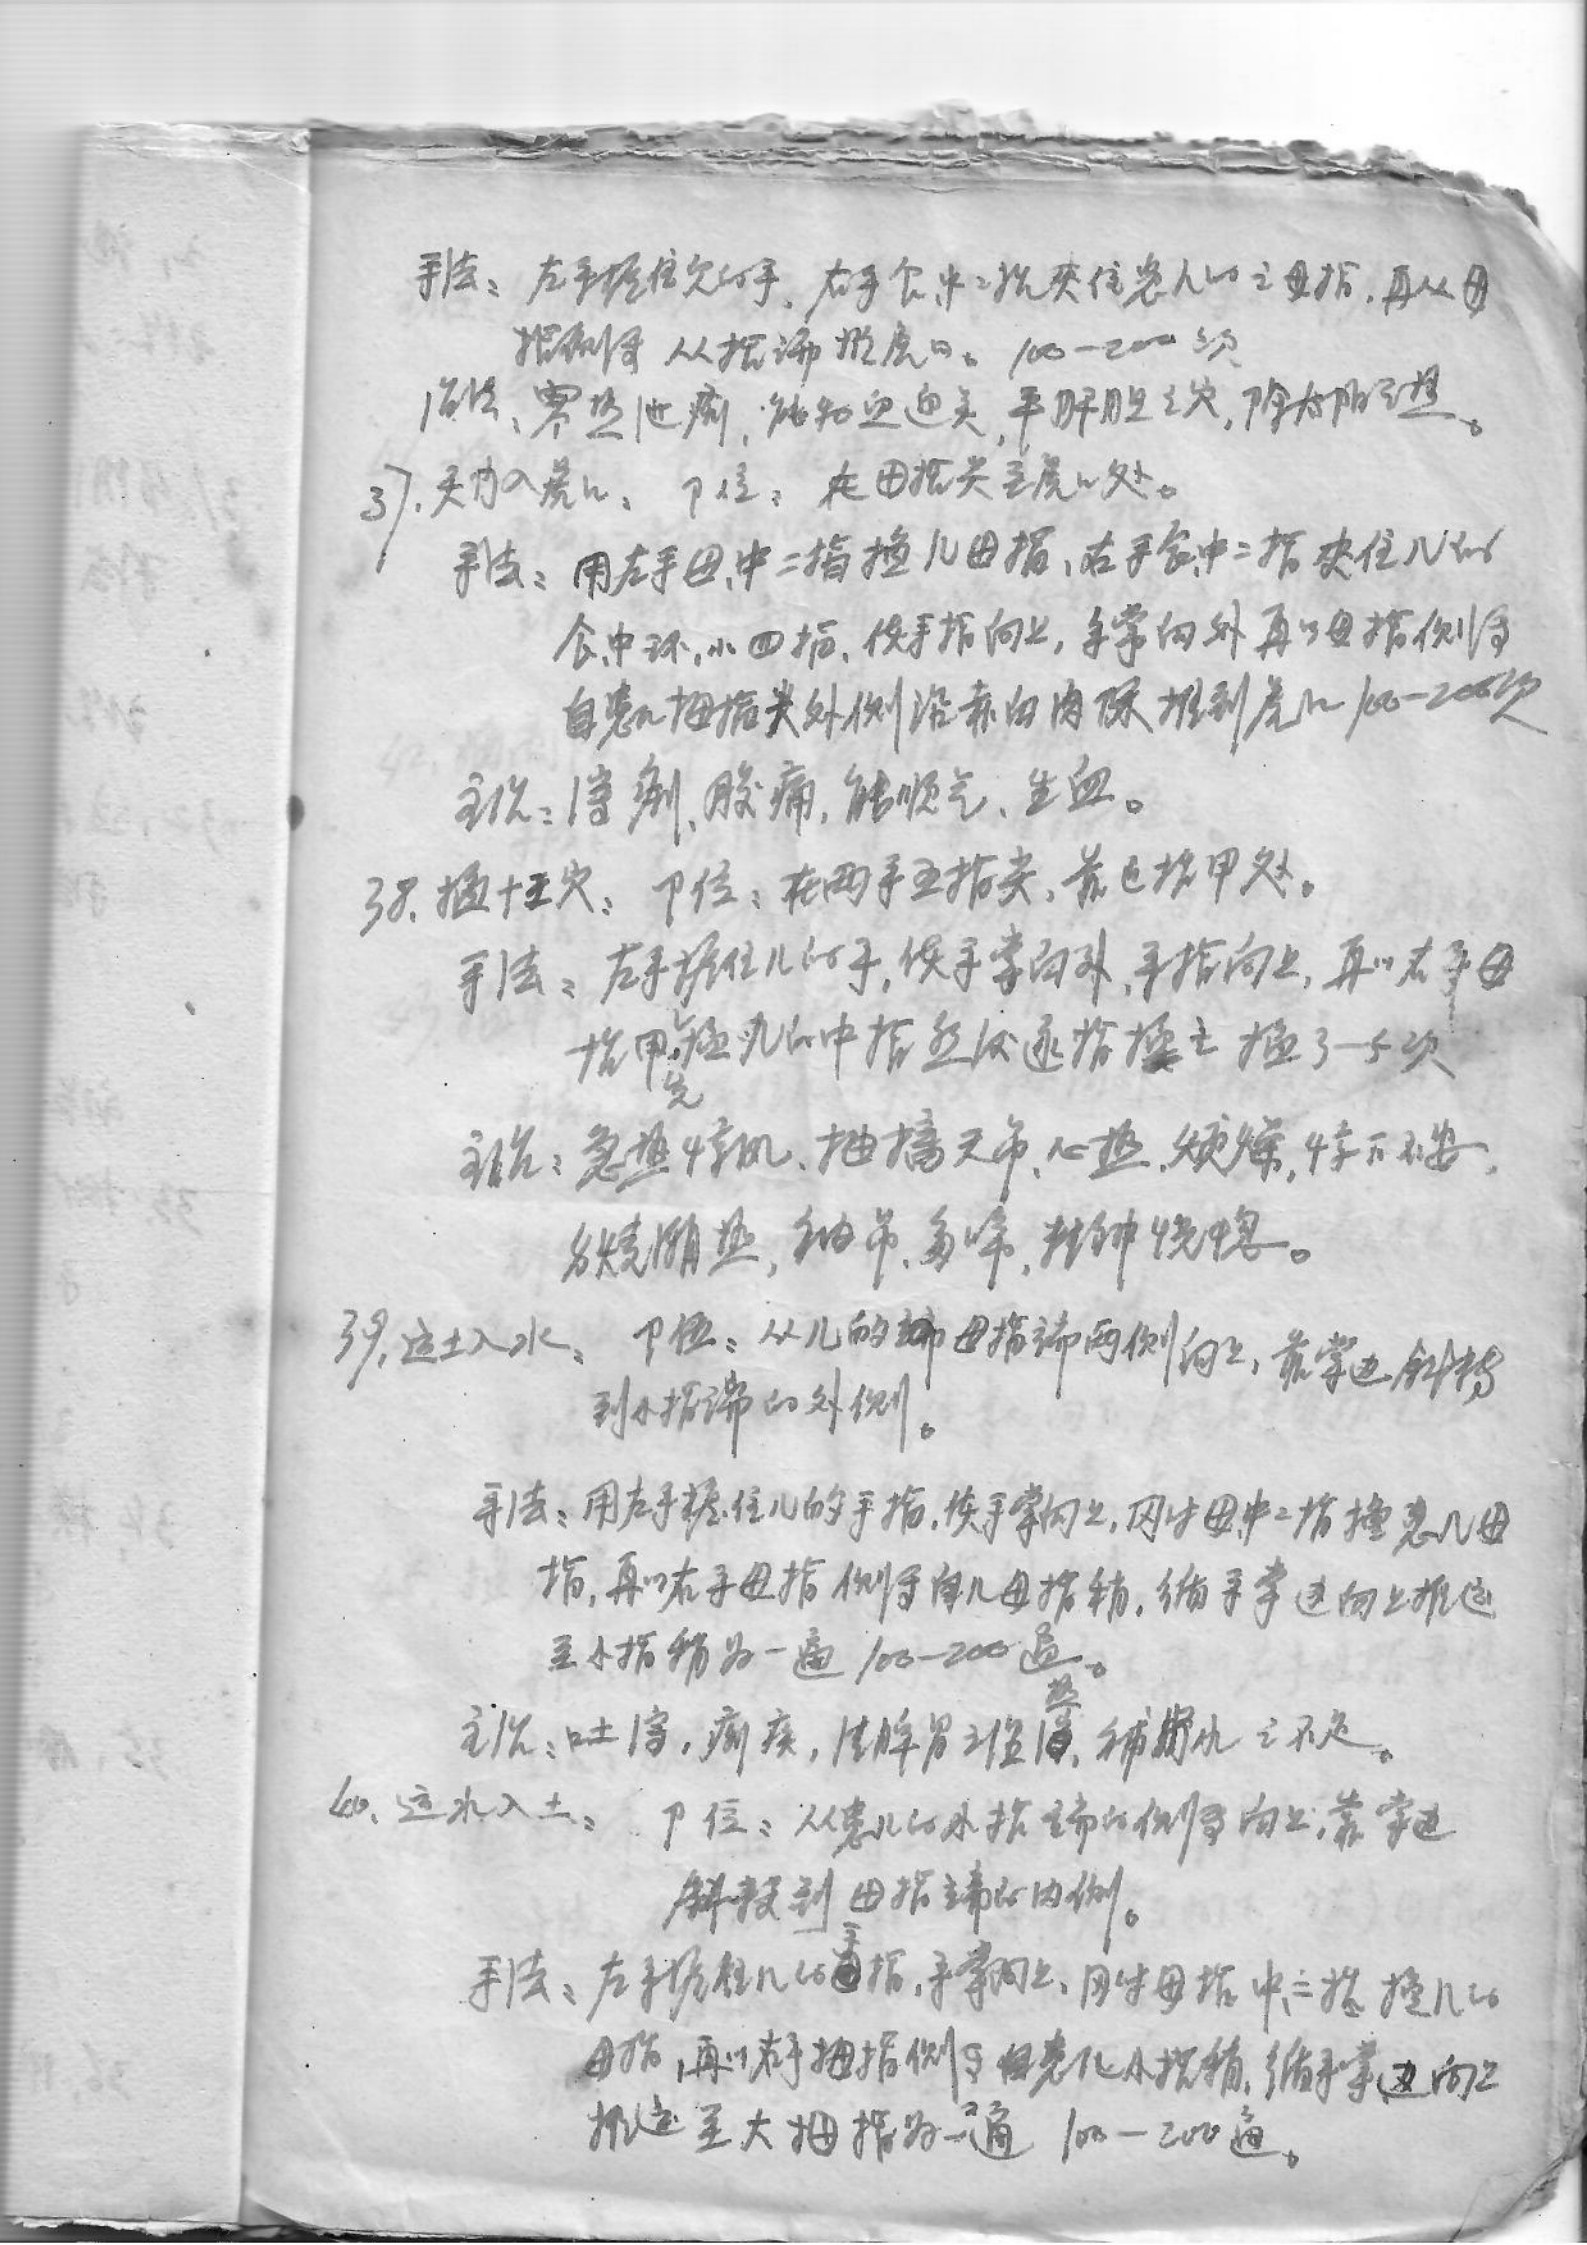 手法：左手握住儿的手，右手食.中二指夹住患儿的之母指，再以母
指侧锋从指端推虎口。100—200次
治法、寒热泄痢，能和血通关，平肝胆之火，除
37.天门入虎口： 卩位：在母指尖至虎口处。
手法：用左手母.中二指掐儿母指、右手食.中二指夹住儿的
食.中.环.小四指、使手指向上，手掌向外再以母指侧锋
自患儿拇指尖外侧沿赤白肉际推到虎口100—200次
主治：泻痢、腹痛，能顺气、生血。
38.掐十王穴： 卩位：在两手五指尖、靠近指甲处。
手法：左手握住儿的手，使手掌向外，手指向上，再以右手母
指甲先掐儿的中指然后逐指掐之 掐3—5次
主治：急热惊风、抽搐天吊、心热、烦燥，惊下不安，
发烧潮热，多啼，精神恍惚。
39.运土入水： 卩位：从儿的母指端两侧向上，靠掌边斜行
到小指端的外侧。
手法：用左手握住儿的手指，使手掌向上，同时母中二指掐患儿母
指，再以右手母指侧锋自儿母指稍，循手掌边向上推运
至小指稍为一遍100—200遍。
主治：吐泻，痢疾，清脾胃之湿热，补肾水之不足。
40.运水入土： 卩位：从患儿的小指端的侧锋向上，靠掌边
斜按到母指端的内侧。
手法：左手握住儿的手指，手掌向上、同时母指中二指掐儿的
母指，再以右手拇指侧锋自患儿小指稍，循手掌边向上
推运至大拇指为一遍 100—200遍。